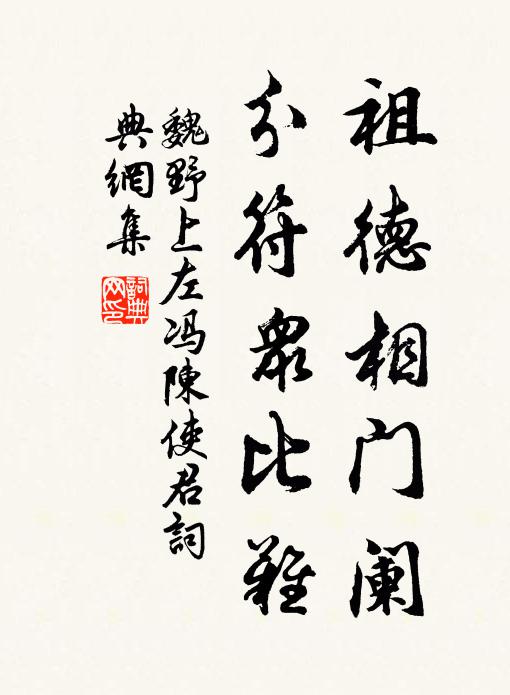 祖德相门阑
分符众比难
魏野上左冯陳使君詞
典網集
詞典網印